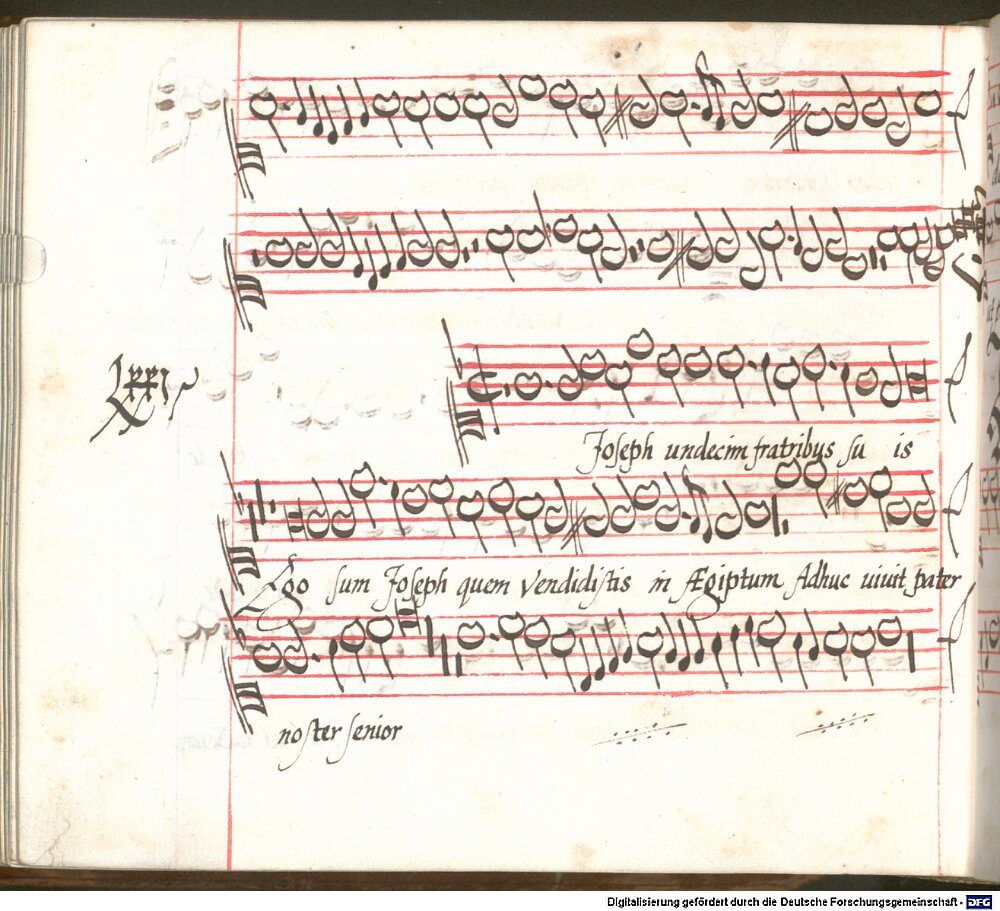 Lxxi
Joseph undecim fratribus su is
Ego sum Joseph quem vendidistis in Ægiptum Adhuc uiuit pater
noster senior
Digitalisierung gefördert durch die Deutsche Forschungsgemeinschaft - DFG